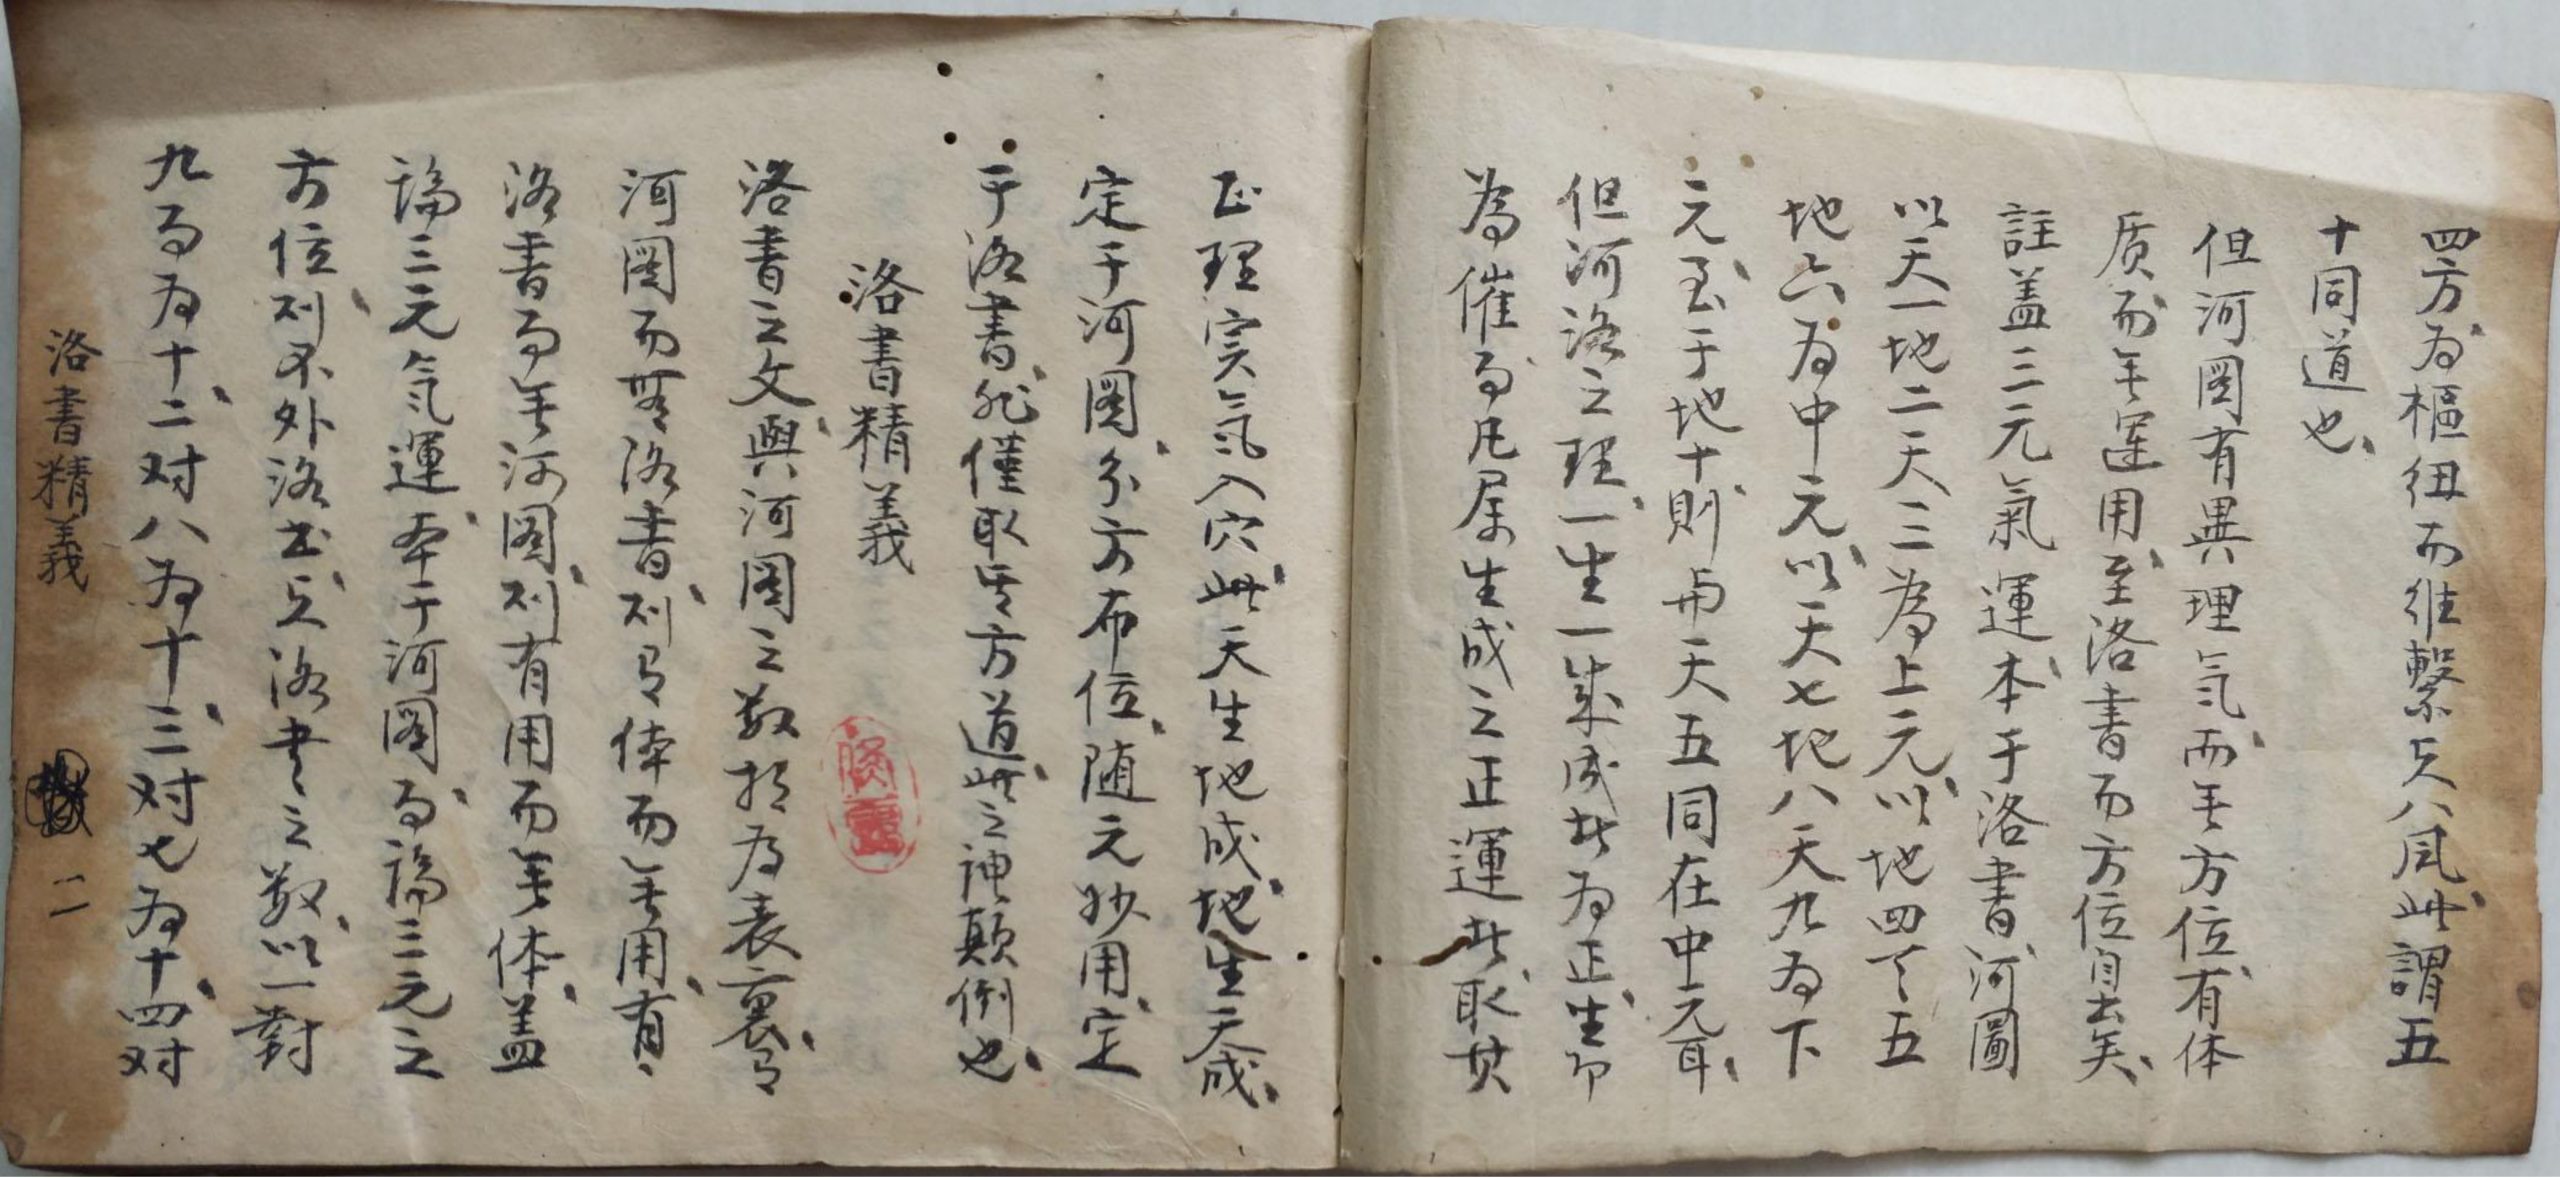 四方为樞纽而維繫乎八風此謂五
十同道也
但河图有異理气而無方位有体
质而無運用至洛書而方位自出矣
註盖三元氣運本于洛書河圖
以天一地二天三為上元以地四天五
地六为中元以天七地八天九为下
元至于地十則与天五同在中元耳
但河洛之理一生一成此为正生
為催而凡屋生成之正運此取其
正理实气入穴此天生地成地生天成
定于河图分方布位随元妙用定
于洛書非僅取其方道此之神顛倒也
洛書精義
洛書之文與河图之数相为表裏
河图而無洛書則有体而無用有
洛書而無河图則有用而無体盖
論三元气運本于河图而論三元之
方位則不外洛书乎洛書之数以一對
九而为十二对八为十三对七为十四对
洛書精義 二